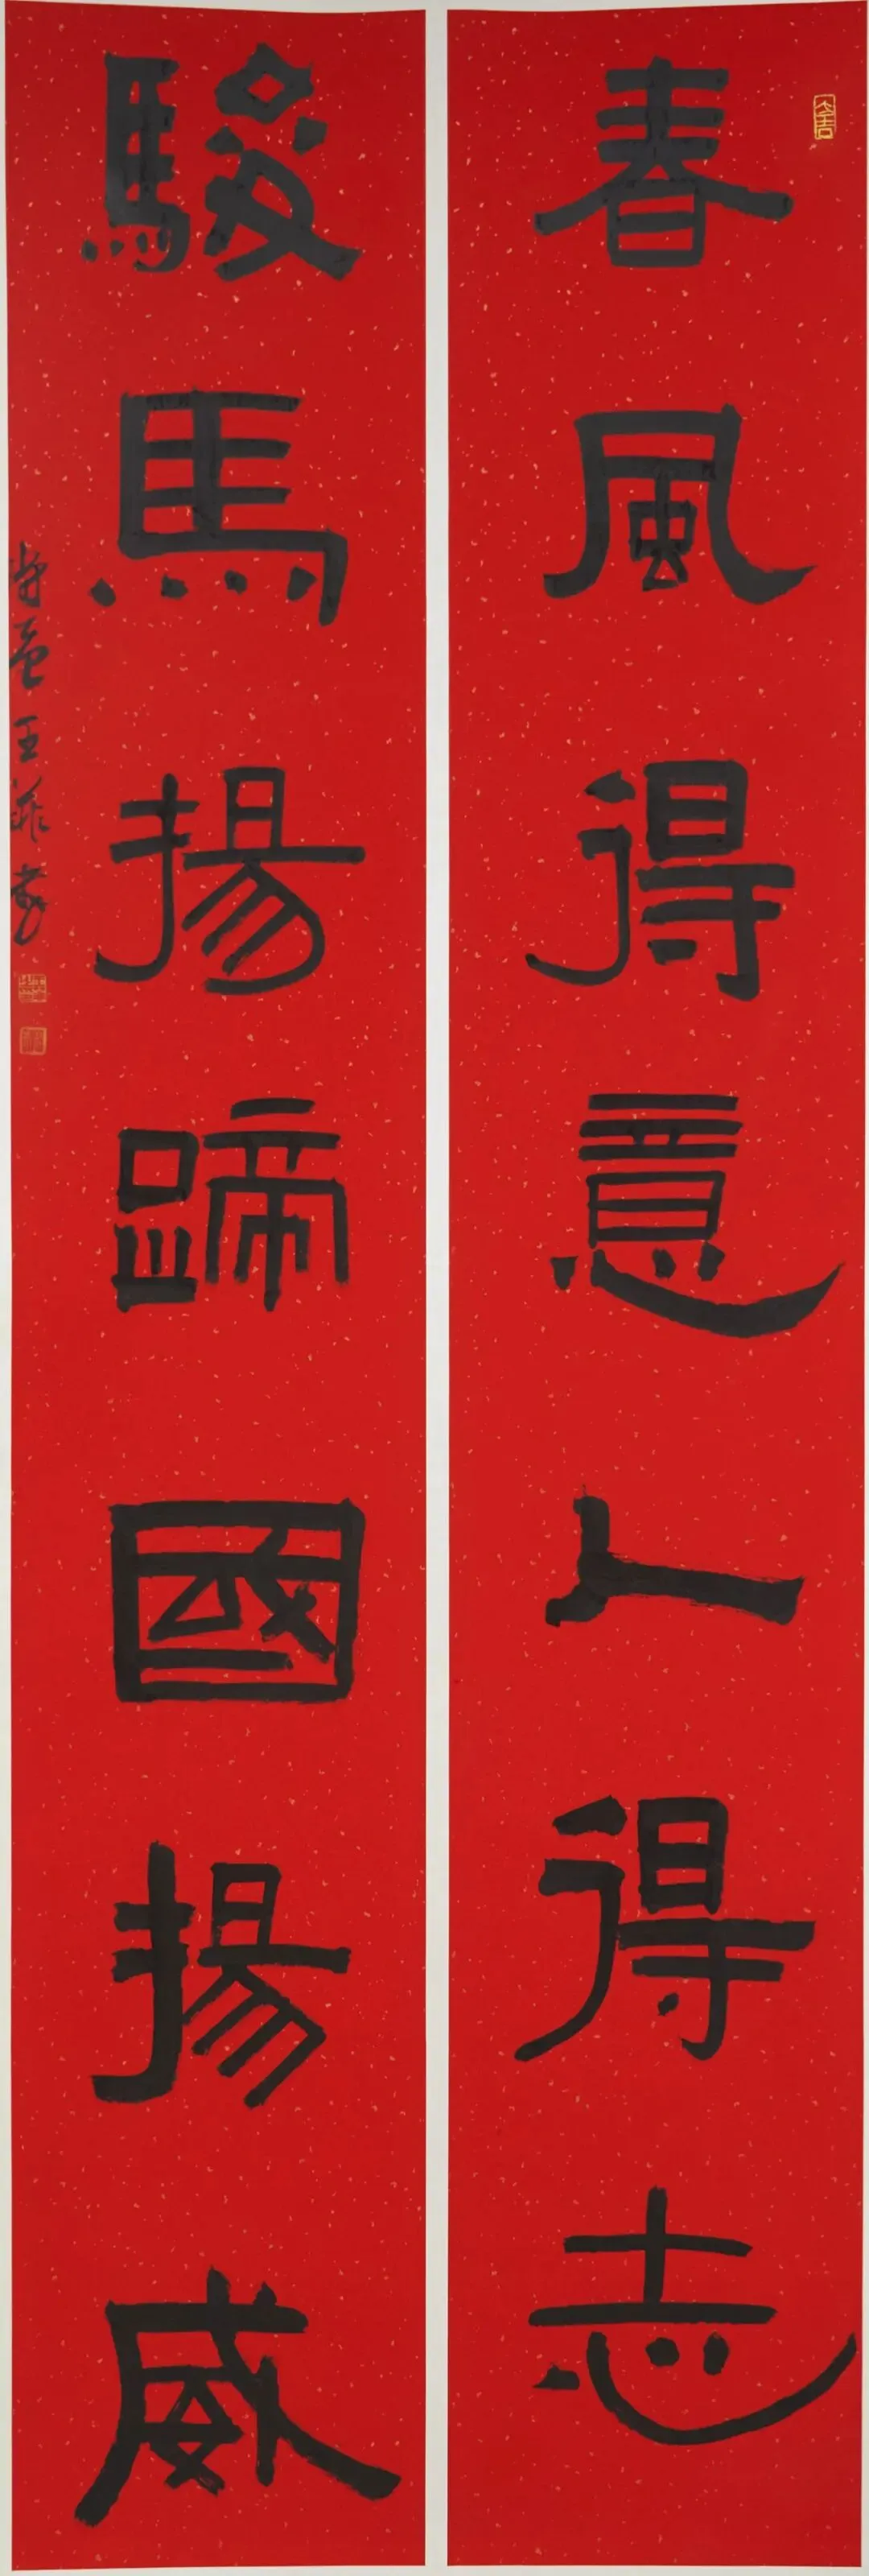 春風得意人得志
駿馬揚蹄國揚威